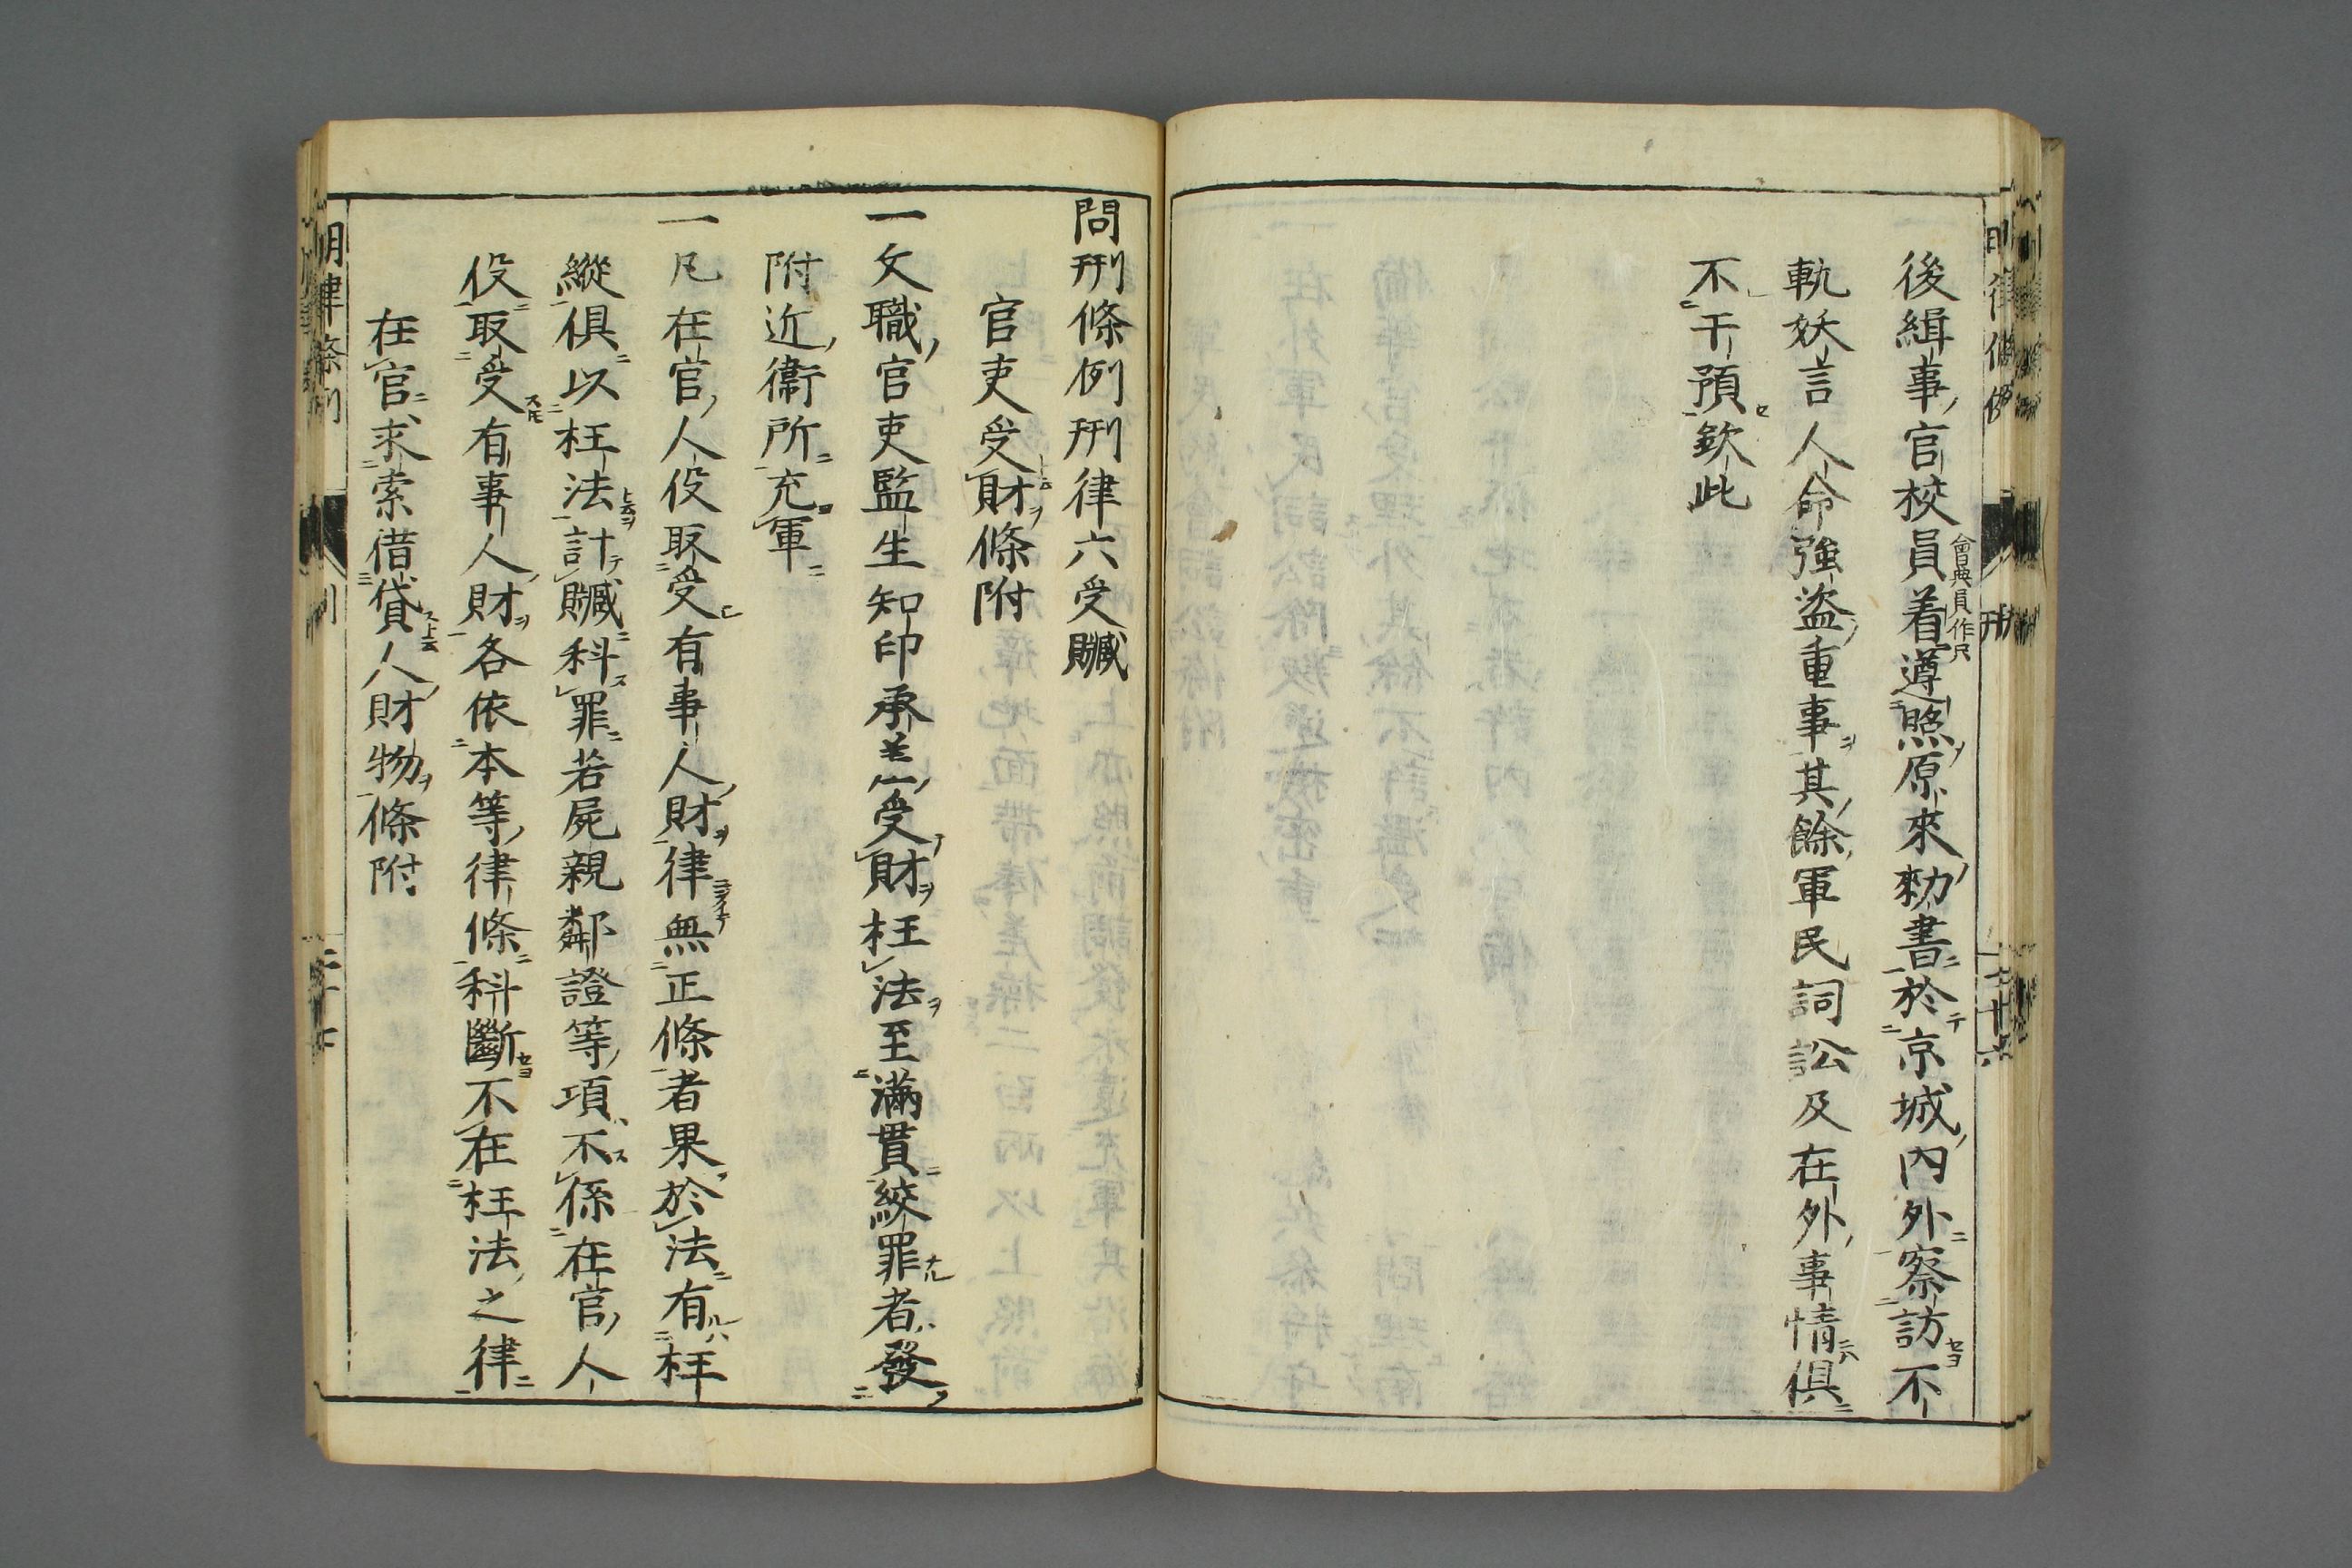 後緝事官校員着遵照原來勑書於京城內外察訪不
會典員作只
軌妖言人命強盜重事其餘軍民詞訟及在外事情俱
不干預欽此
問刑條例刑律六受贓
官吏受財條附
一文職官吏監生知印承差受財枉法至滿貫絞罪者發
附近衞所充軍
一凡在官人役取受有事人財律無正條者果於法有枉
縱俱以枉法計贓科罪若屍親鄰證等項不係在官人
役取受有事人財各依本等律條科斷不在枉法之律
在官求索借貸人財物條附